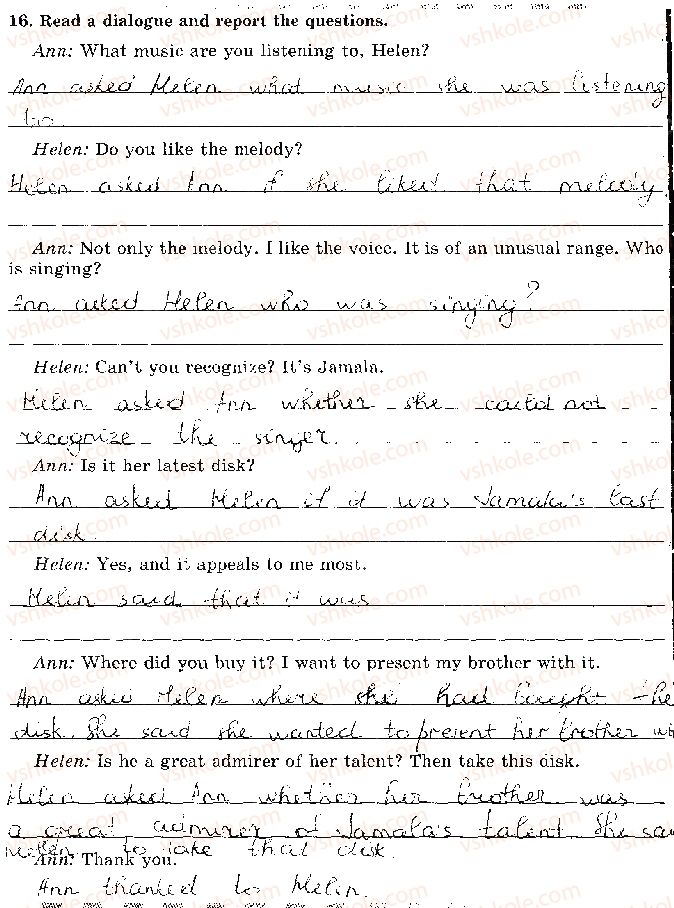 16. Read a dialogue and report the questions.
Ann: What music are you listening to, Helen?
Ann asked Helen what music she was listening
to.
Helen: Do you like the melody?
Helen asked Ann if she liked that melody.
Ann: Not only the melody. I like the voice. It is of an unusual range. Who
is singing?
Ann asked Helen who was singing?
Helen: Can't you recognize? It's Jamala.
Helen asked Ann whether she could not
recognize the singer.
Ann: Is it her latest disk?
Ann asked Helen if it was Jamala's last
disk.
Helen: Yes, and it appeals to me most.
Helen said that it was
Ann: Where did you buy it? I want to present my brother with it.
Ann asked Helen where she had bought the
disk. She said she wanted to present her brother wi
Helen: Is he a great admirer of her talent? Then take this disk.
Helen asked Ann whether her brother was
a great admirer of Jamala's talent. She sai
to take that disk.
Ann: Thank you.
Ann thanked to Helen.
vshkole.com